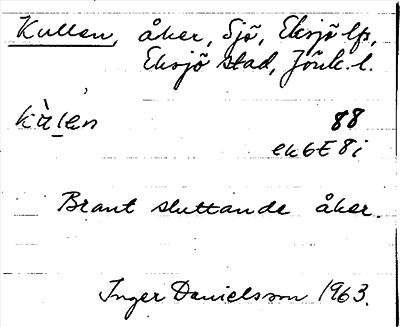 Kullen, åker, Sjö, Eksjö lfs,
Eksjö stad, Jönk. l.
kùlen 88
ek6E8i
Brant sluttande åker.
Inger Danielsson 1963.